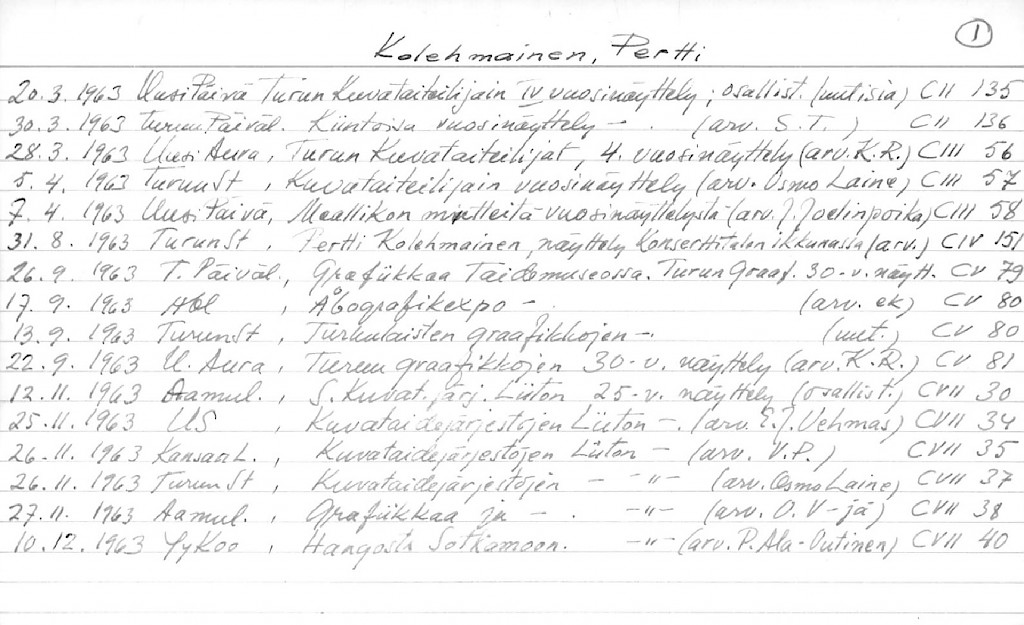 1
Kolehmainen, Pertti
20.3.1963 Uusi Päivä Turun Kuvataiteilijain IV vuosinäyttely; osallist. (uutisia) CII 135
30.3.1963 Turun Päiväl. Kiintoisa vuosinäyttely - . (arv. S.T.) CII 136
28.3.1963 Uusi Aura, Turun Kuvataiteilijat, 4. vuosinäyttely (arv. K.R.) CIII 56
5.4.1963 TurunSt, Kuvataiteilijain vuosinäyttely (arv. Osmo Laine) CIII 57
7.4.1963 Uusi Päivä, Maallikon mietteitä vuosinäyttelystä (arv. J. Joelinpoika) CIII 58
31.8.1963 TurunSt, Pertti Kolehmainen, näyttely Konserttitalon ikkunassa (arv.) CIV 151
26.9.1963 T. Päiväl., Grafiikkaa Taidemuseossa. Turun Graaf. 30-v. näytt. CV 79
17.9.1963 Hbl, Åbografikexpo - . (arv. ek) CV 80
13.9.1963 TurunSt, Turkulaisten graafikkojen - . (uut.) CV 80
22.9.1963 U. Aura, Turun graafikkojen 30-v. näyttely (arv. K.R.) CV 81
12.11.1963 Aamul., S. Kuvat.järj. Liiton 25-v. näyttely (osallist.) CVII 30
25.11.1963 US, Kuvataidejärjestöjen Liiton - . (arv. E.J. Vehmas) CVII 34
26.11.1963 Kansan L., Kuvataidejärjestöjen Liiton - (arv. V.P.) CVII 35
26.11.1963 TurunSt, Kuvataidejärjestöjen - -"- (arv. Osmo Laine) CVII 37
27.11.1963 Aamul., Grafiikkaa ja - . -"- (arv. O. V-jä) CVII 38
10.12.1963 YyKoo, Hangosta Sotkamoon. -"- (arv. P. Ala-Outinen) CVII 40